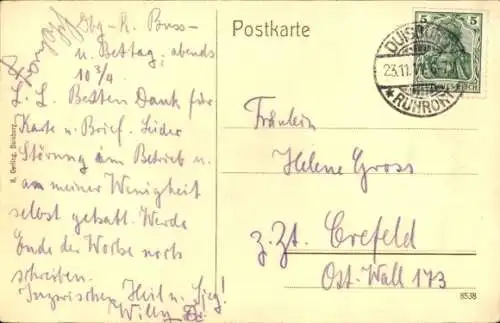 Dbg-R. Buss-
u. Bettag, abends
10 3/4
L. L. Besten Dank für
Karte u. Brief. Leider
Störung im Betrieb u.
an meiner Wenigkeit
selbst gehabt. Werde
Ende der Woche noch
schreiben.
Inzwischen Heil u. Sieg!
Willy
Postkarte
5
DUISBURG
23.11.
* RUHRORT
Fräulein
Helene Gross
z. Zt. Crefeld
Ost-Wall 173
8538